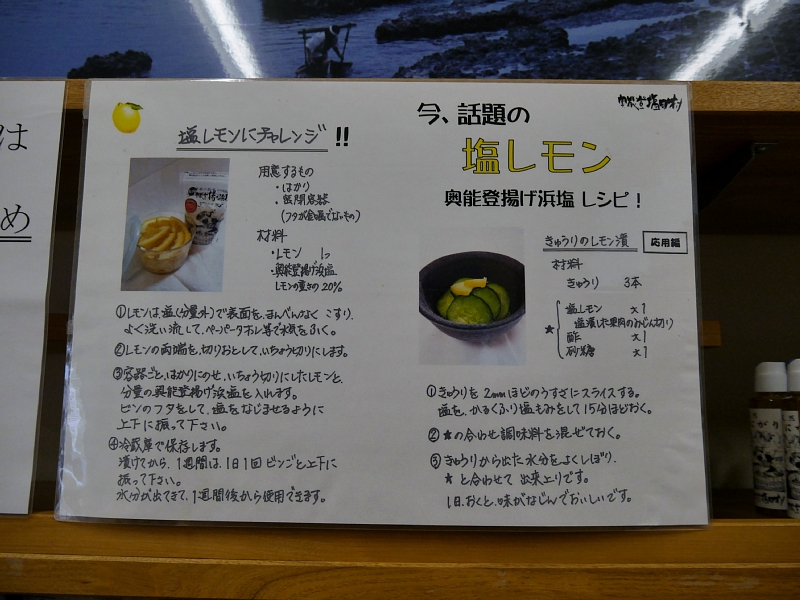 は
め
塩レモンにチャレンジ!!
用意するもの
・はかり
・密閉容器
(フタが金属でないもの)
材料
・レモン 1コ
・奥能登揚げ浜塩
レモンの重さの20%
①レモンは、塩(分量外)で表面を、まんべんなく こすり、
よく洗い流して、ペーパータオル等で水気をふく。
②レモンの両端を、切りおとして、いちょう切りにします。
③容器ごと、はかりにのせ、いちょう切りにしたレモンと、
分量の奥能登揚げ浜塩を入れます。
ビンのフタをして、塩をなじませるように
上下に振って下さい。
④冷蔵庫で保存します。
漬けてから、1週間は、1日1回ビンごと上下に
振って下さい。
水分が出てきて、1週間後から使用できます。
今、話題の
塩レモン
奥能登揚げ浜塩 レシピ!
きゅうりのレモン漬
応用編
材料
きゅうり 3本
★
塩レモン 大1
塩漬した果肉のみじん切り
酢 大1
砂糖 大1
①きゅうりを 2mmほどのうすさにスライスする。
塩を、かるくふり塩もみをして15分ほどおく。
② ★の合わせ調味料を混ぜておく。
③ きゅうりから出た水分をよくしぼり、
★と合わせて 出来上りです。
1日、おくと、味がなじんでおいしいです。
にがり